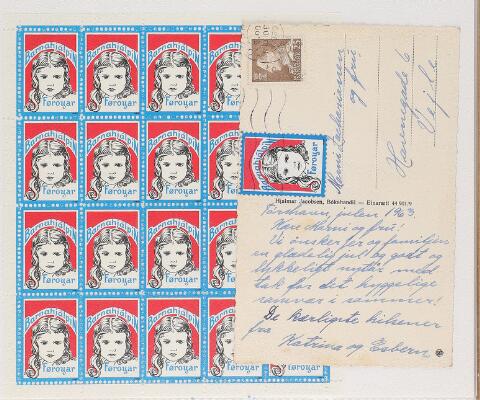 Barnahjálpin
Føroyar
Barnahjálpin
Føroyar
Barnahjálpin
Føroyar
Barnahjálpin
Føroyar
Barnahjálpin
Føroyar
Barnahjálpin
Føroyar
Barnahjálpin
Føroyar
Barnahjálpin
Føroyar
Barnahjálpin
Føroyar
Barnahjálpin
Føroyar
Barnahjálpin
Føroyar
Barnahjálpin
Føroyar
Barnahjálpin
Føroyar
Barnahjálpin
Føroyar
Barnahjálpin
Føroyar
Barnahjálpin
Føroyar
Barnahjálpin
Føroyar
og frú
Havnegade 6
Vejle
Hjalmar Jacobsen, Bókahandil — Einarætt
Tórshavn, julen 1963.
Kære Herni og frú!
Vi ønsker jer og familien
en glædelig jul og godt og
lykkeligt nytår med
tak for det hyggelige
samvær i sommer!
De kærligste hilsener
fra
Katrina og Esbern